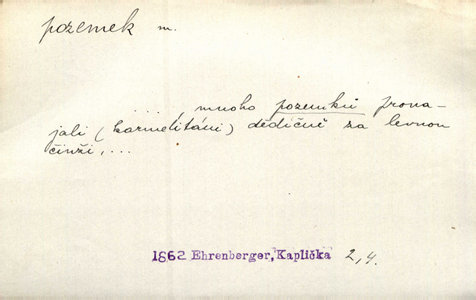 pozemek m.
.... mnoho pozemků prona-
jali (karmelitáni) dědičně za levnou
činži,...
1862 Ehrenberger, Kaplička 2,4.